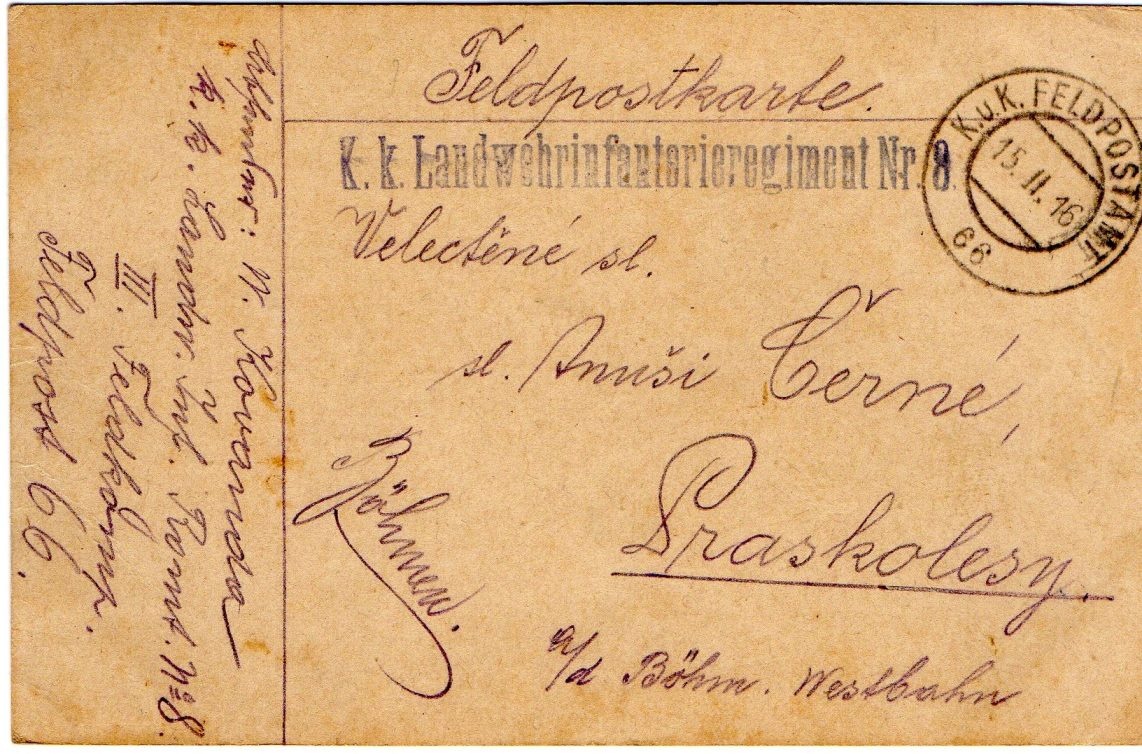 Feldpostkarte.
K. k. Landwehrinfanterieregiment Nr. 8.
K.u.K. FELDPOSTAMT
15.II.16
66
Velectěné sl.
sl. Anuši Černé,
Praskolesy.
a/d Böhm. Westbahn
Böhmen.
Absender: V. Kovanda
K. k. Landw. Inf. Rgmt. No 8.
III. Feldkomp.
Feldpost 66.